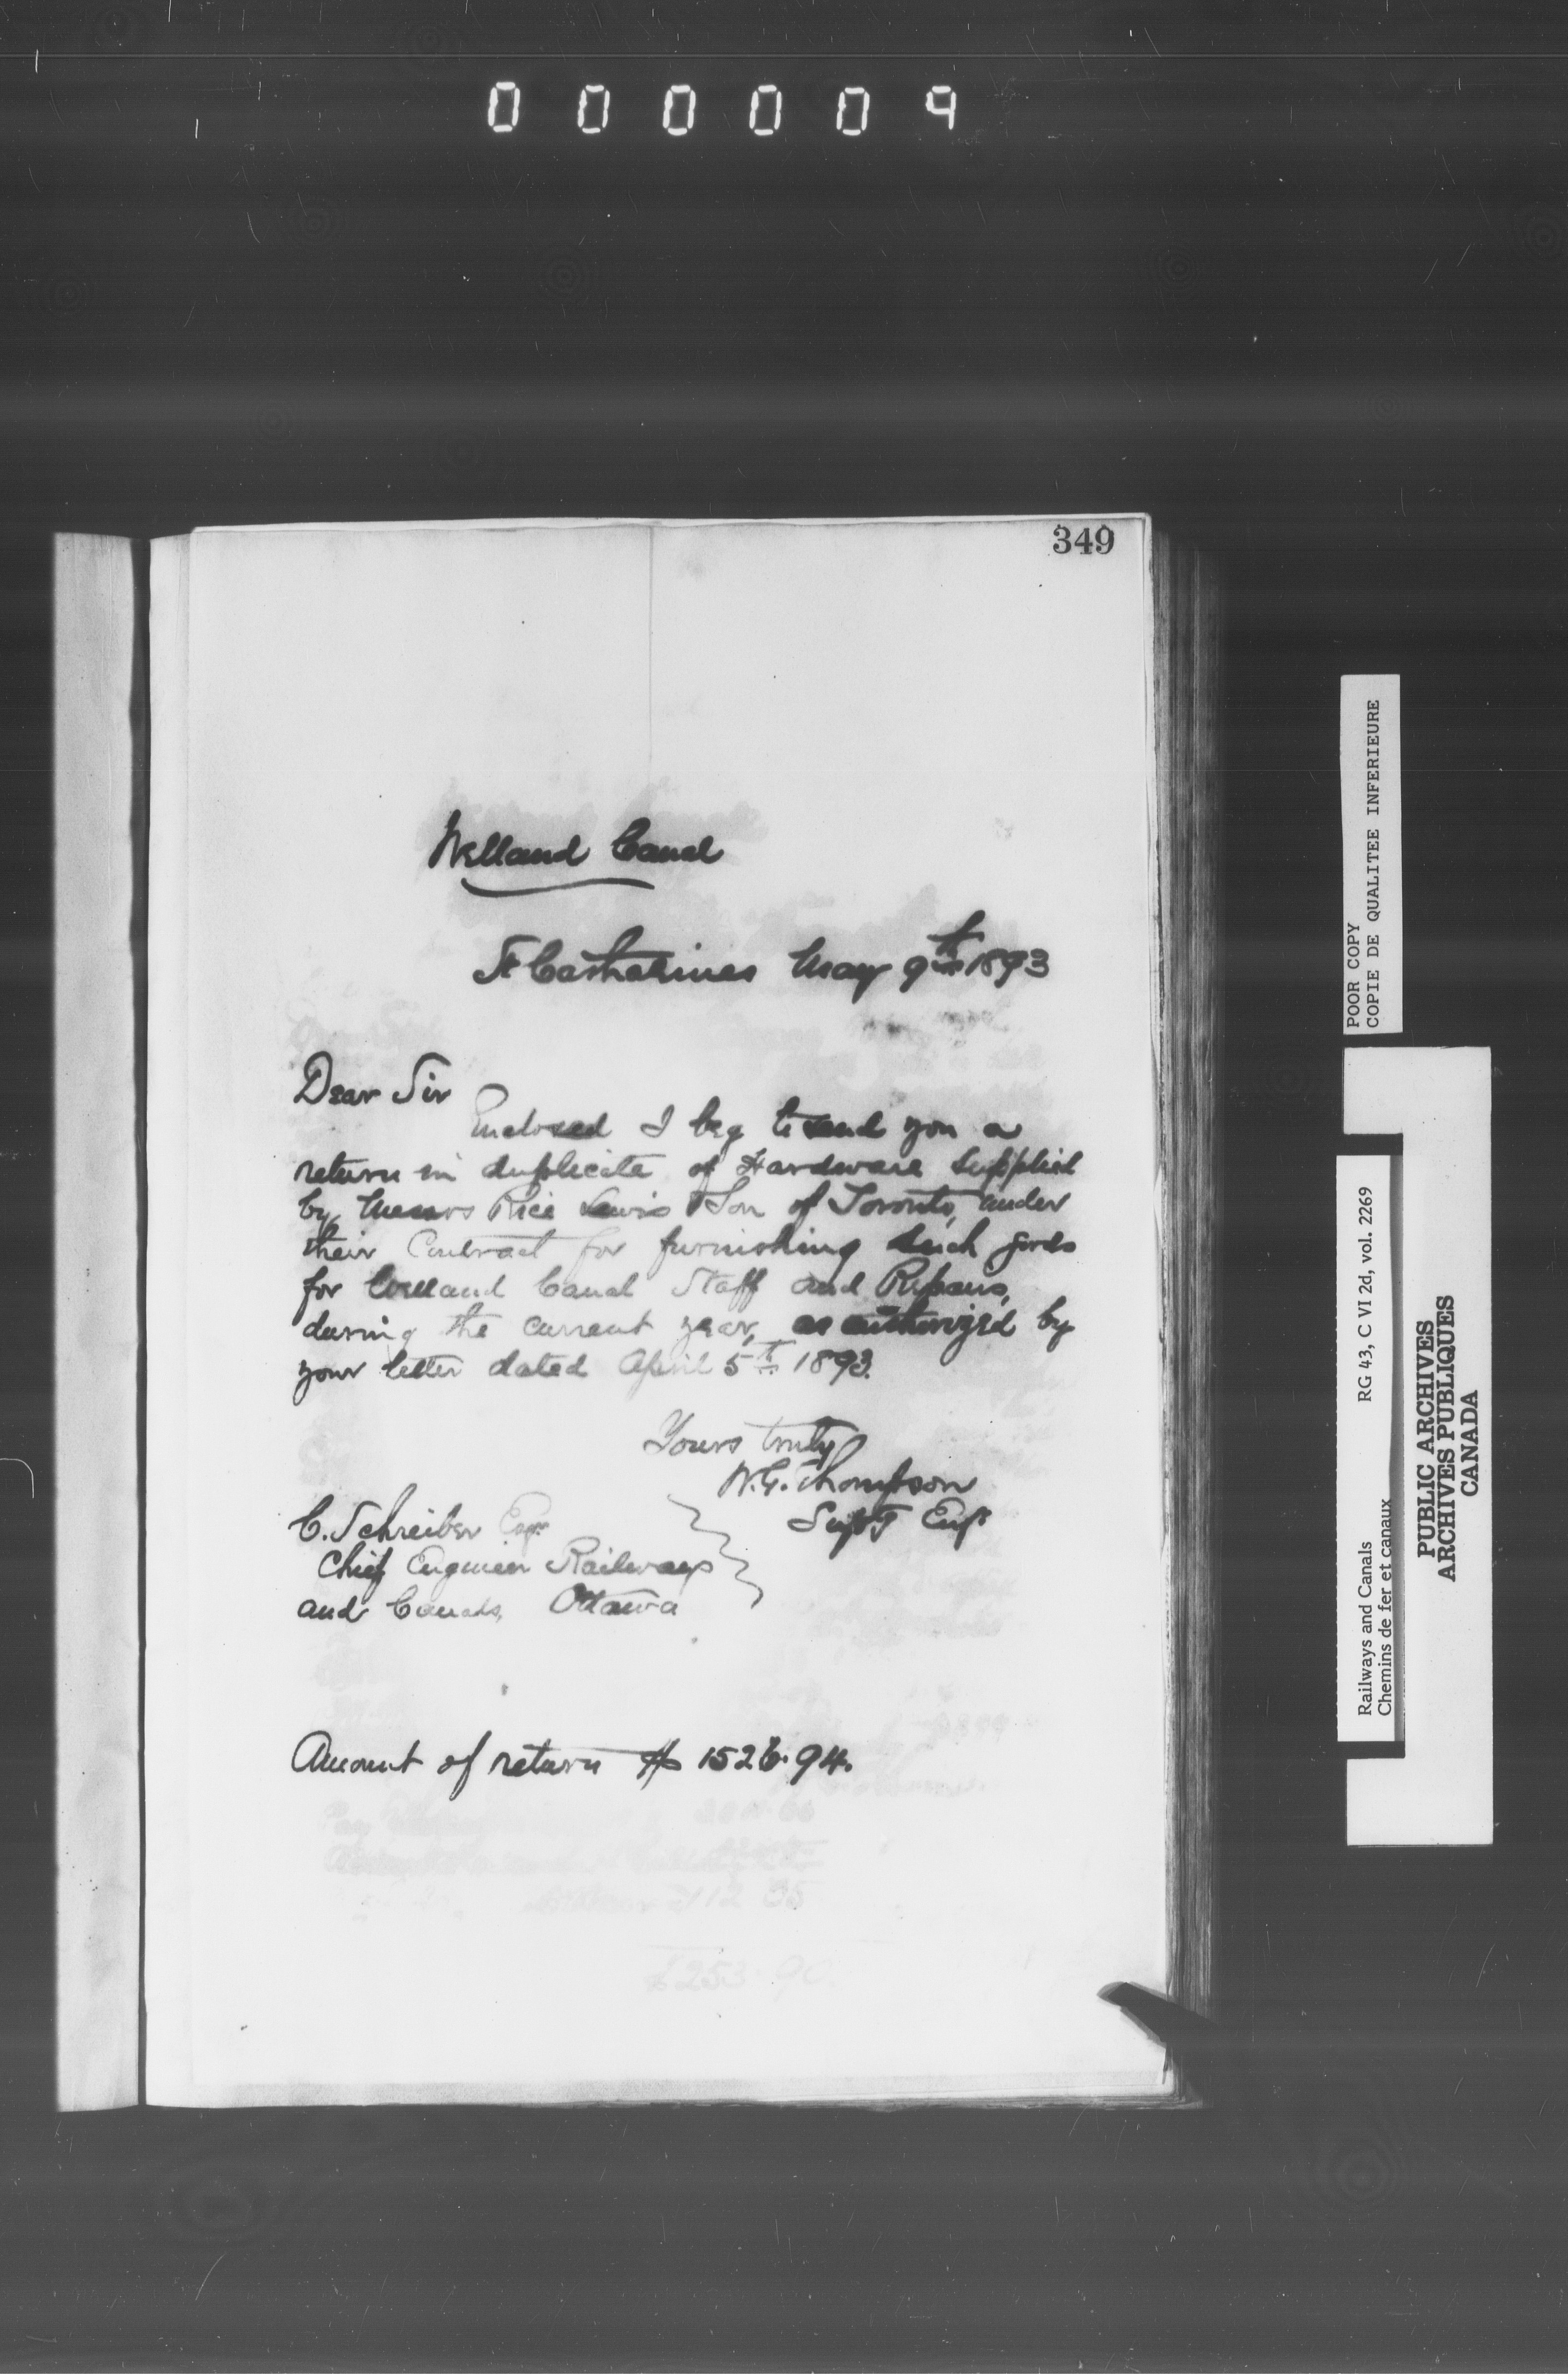 000009
349
Welland Canal
St Catharines May 9th 1893
Dear Sir
Enclosed I beg to send you a
return in duplicate of Hardware supplied
by Messrs Rice Lewis & Son of Toronto, under
their Contract for furnishing such goods
for Welland Canal Staff and Repairs,
during the current year, as authorized by
your letter dated April 5th 1893.
Yours truly
W.G. Thompson
Supt Engr
C. Schreiber Esqr
Chief Engineer Railways
and Canals, Ottawa
Amount of return $ 1526.94.
POOR COPY
COPIE DE QUALITEE INFERIEURE
Railways and Canals RG 43, C VI 2d, vol. 2269
Chemins de fer et canaux
PUBLIC ARCHIVES
ARCHIVES PUBLIQUES
CANADA